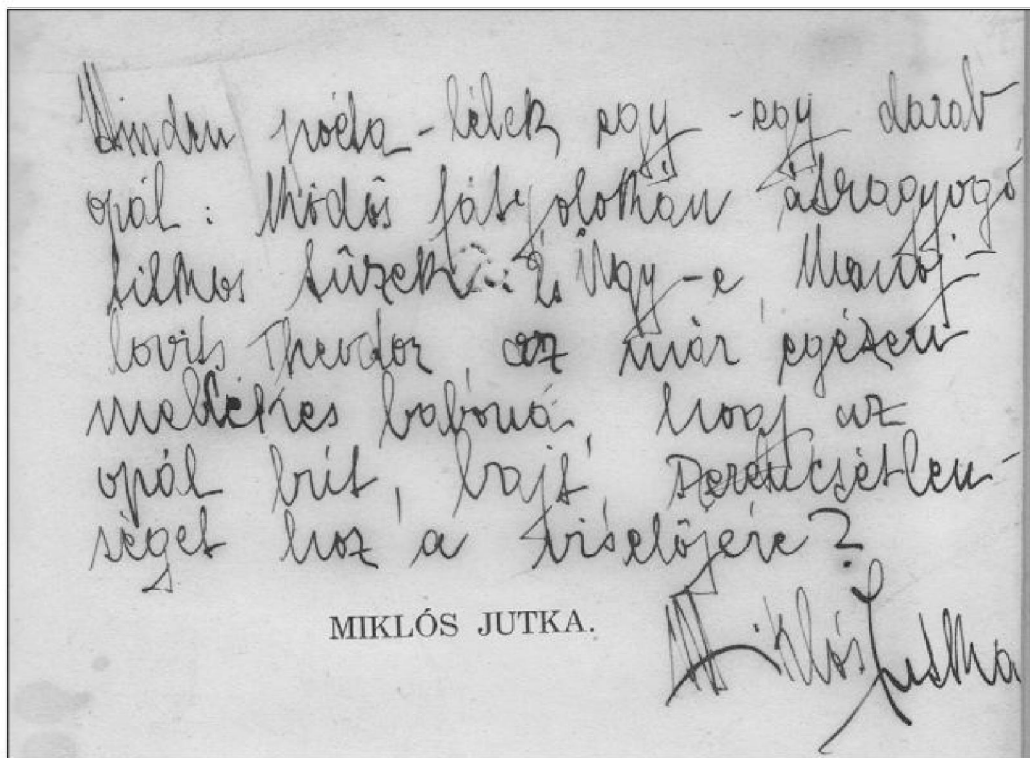 Minden poéta-lélek egy-egy darab
opál: ködös fátyolokon átragyogó
titkos tüzek... És Ugy-e,
lovits Theodor, az már egészen
mellékes babona, hogy az
opál bút, bajt, szerencsétlen-
séget hoz a viselőjére?
MIKLÓS JUTKA.
Miklós Jutka